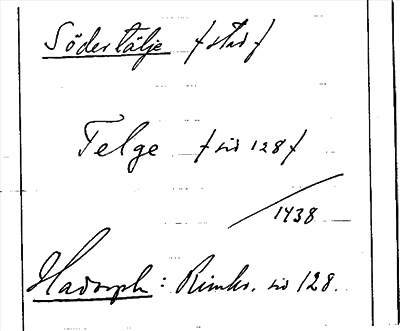 Södertälje /stad/
Telge /sid 128/
/1438
Hadorph: Rimkr. sid 128.